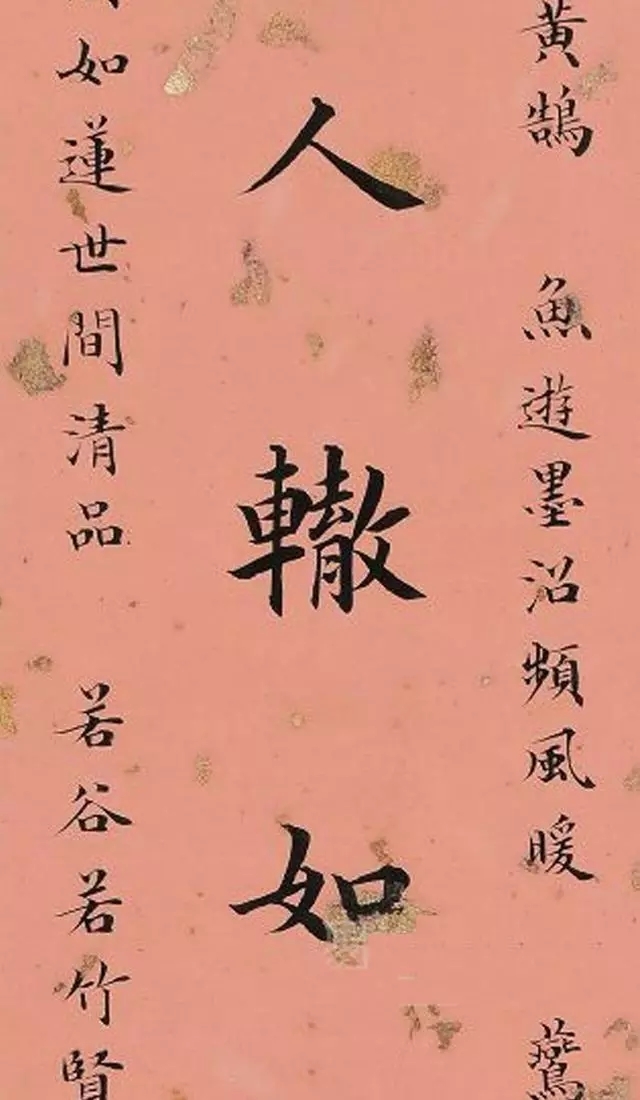 黄鵠 魚遊墨沼頻風暖 鷰
人轍如
如蓮世間清品 若谷若竹賢